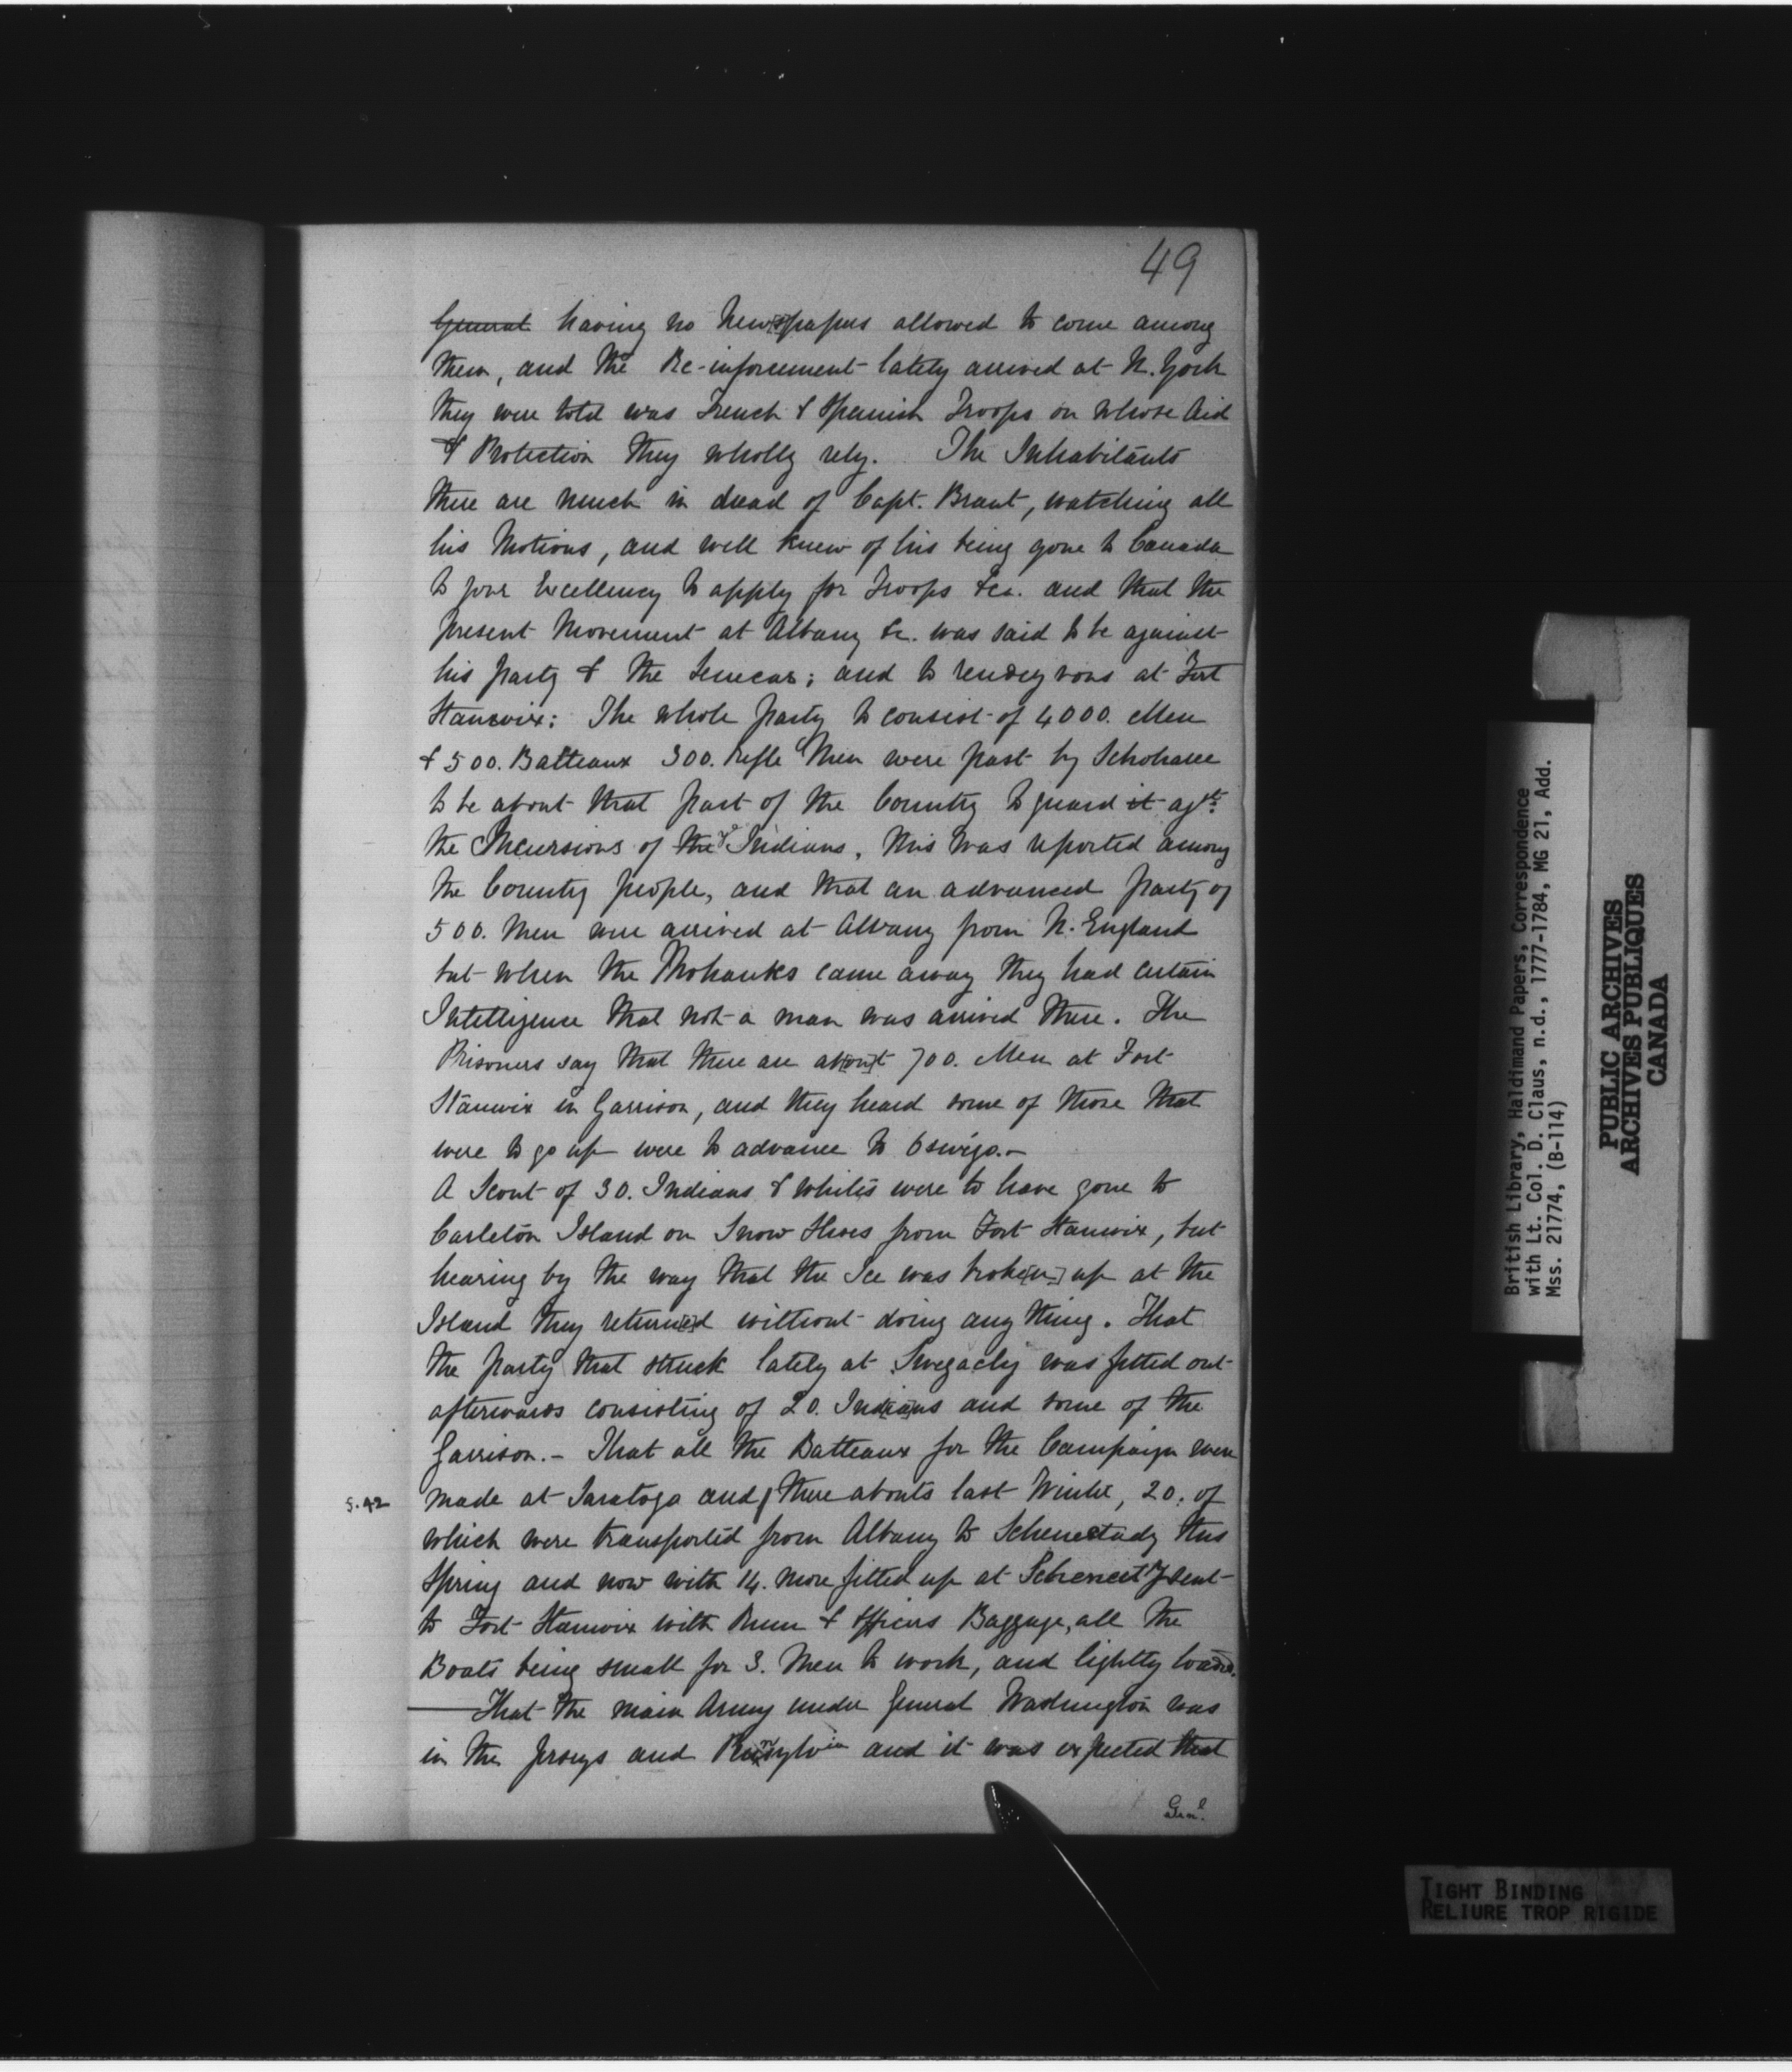 49
General having no New[s]papers allowed to come among
them, and the Re-inforcement lately arrived at N. York
they were told was French & Spanish Troops on whose Aid
& Protection they wholly rely. The Inhabitants
there are much in dread of Capt. Brant, watching all
his Motions, and well knew of his being gone to Canada
to your Excellency to apply for Troops &ca. and that the
present Movement at Albany &c. was said to be against
his party & the Senecas; and to rendezvous at Fort
Stanwix: The whole party to consist of 4000. Men
& 500. Batteaux 300. Rifle Men were past by Schoharee
to be about that part of the Country to guard it agst.
the Incursions of the ye Indians, this was reported among
the Country people, and that an advanced party of
500. Men were arrived at Albany from N. England
but when the Mohawks came away they had certain
Intelligence that not a man was arrived there. The
Prisoners say that there are ab[ou]t 700. Men at Fort
Stanwix in Garrison, and they heard some of those that
were to go up were to advance to Oswego.-
A Scout of 30. Indians & Whites were to have gone to
Carleton Island on Snow Shoes from Fort Stanwix, but
hearing by the way that the Ice was broke[n] up at the
Island they return[e]d without doing any thing. That
the party that struck lately at Swegachy was fitted out
afterwards consisting of 20. Ind[ia]ns and some of the
Garrison.- That all the Batteaux for the Campaign were
S.42 made at Saratoga and thereabouts last Winter, 20. of
which were transported from Albany to Schenectady this
Spring and now with 14. more fitted up at Schenecty sent
to Fort Stanwix with Rum & Officers Baggage, all the
Boats being small for 3. Men to work, and lightly loaded.
— That the main Army under General Washington was
in the Jerseys and and it was expected that
Genl.
British Library, Haldimand Papers, Correspondence
with Lt. Col. D. Claus, n.d., 1777-1784, MG 21, Add.
Mss. 21774, (B-114)
PUBLIC ARCHIVES
ARCHIVES PUBLIQUES
CANADA
TIGHT BINDING
RELIURE TROP RIGIDE